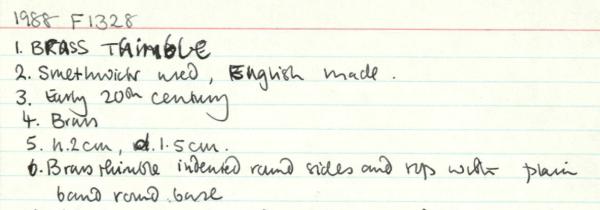 1988 F1328
1. BRASS Thimble
2. Smethwick used, English made.
3. Early 20th century
4. Brass
5. h.2cm, d.1.5cm.
6. Brass thimble indented round sides and top with plain
band round base